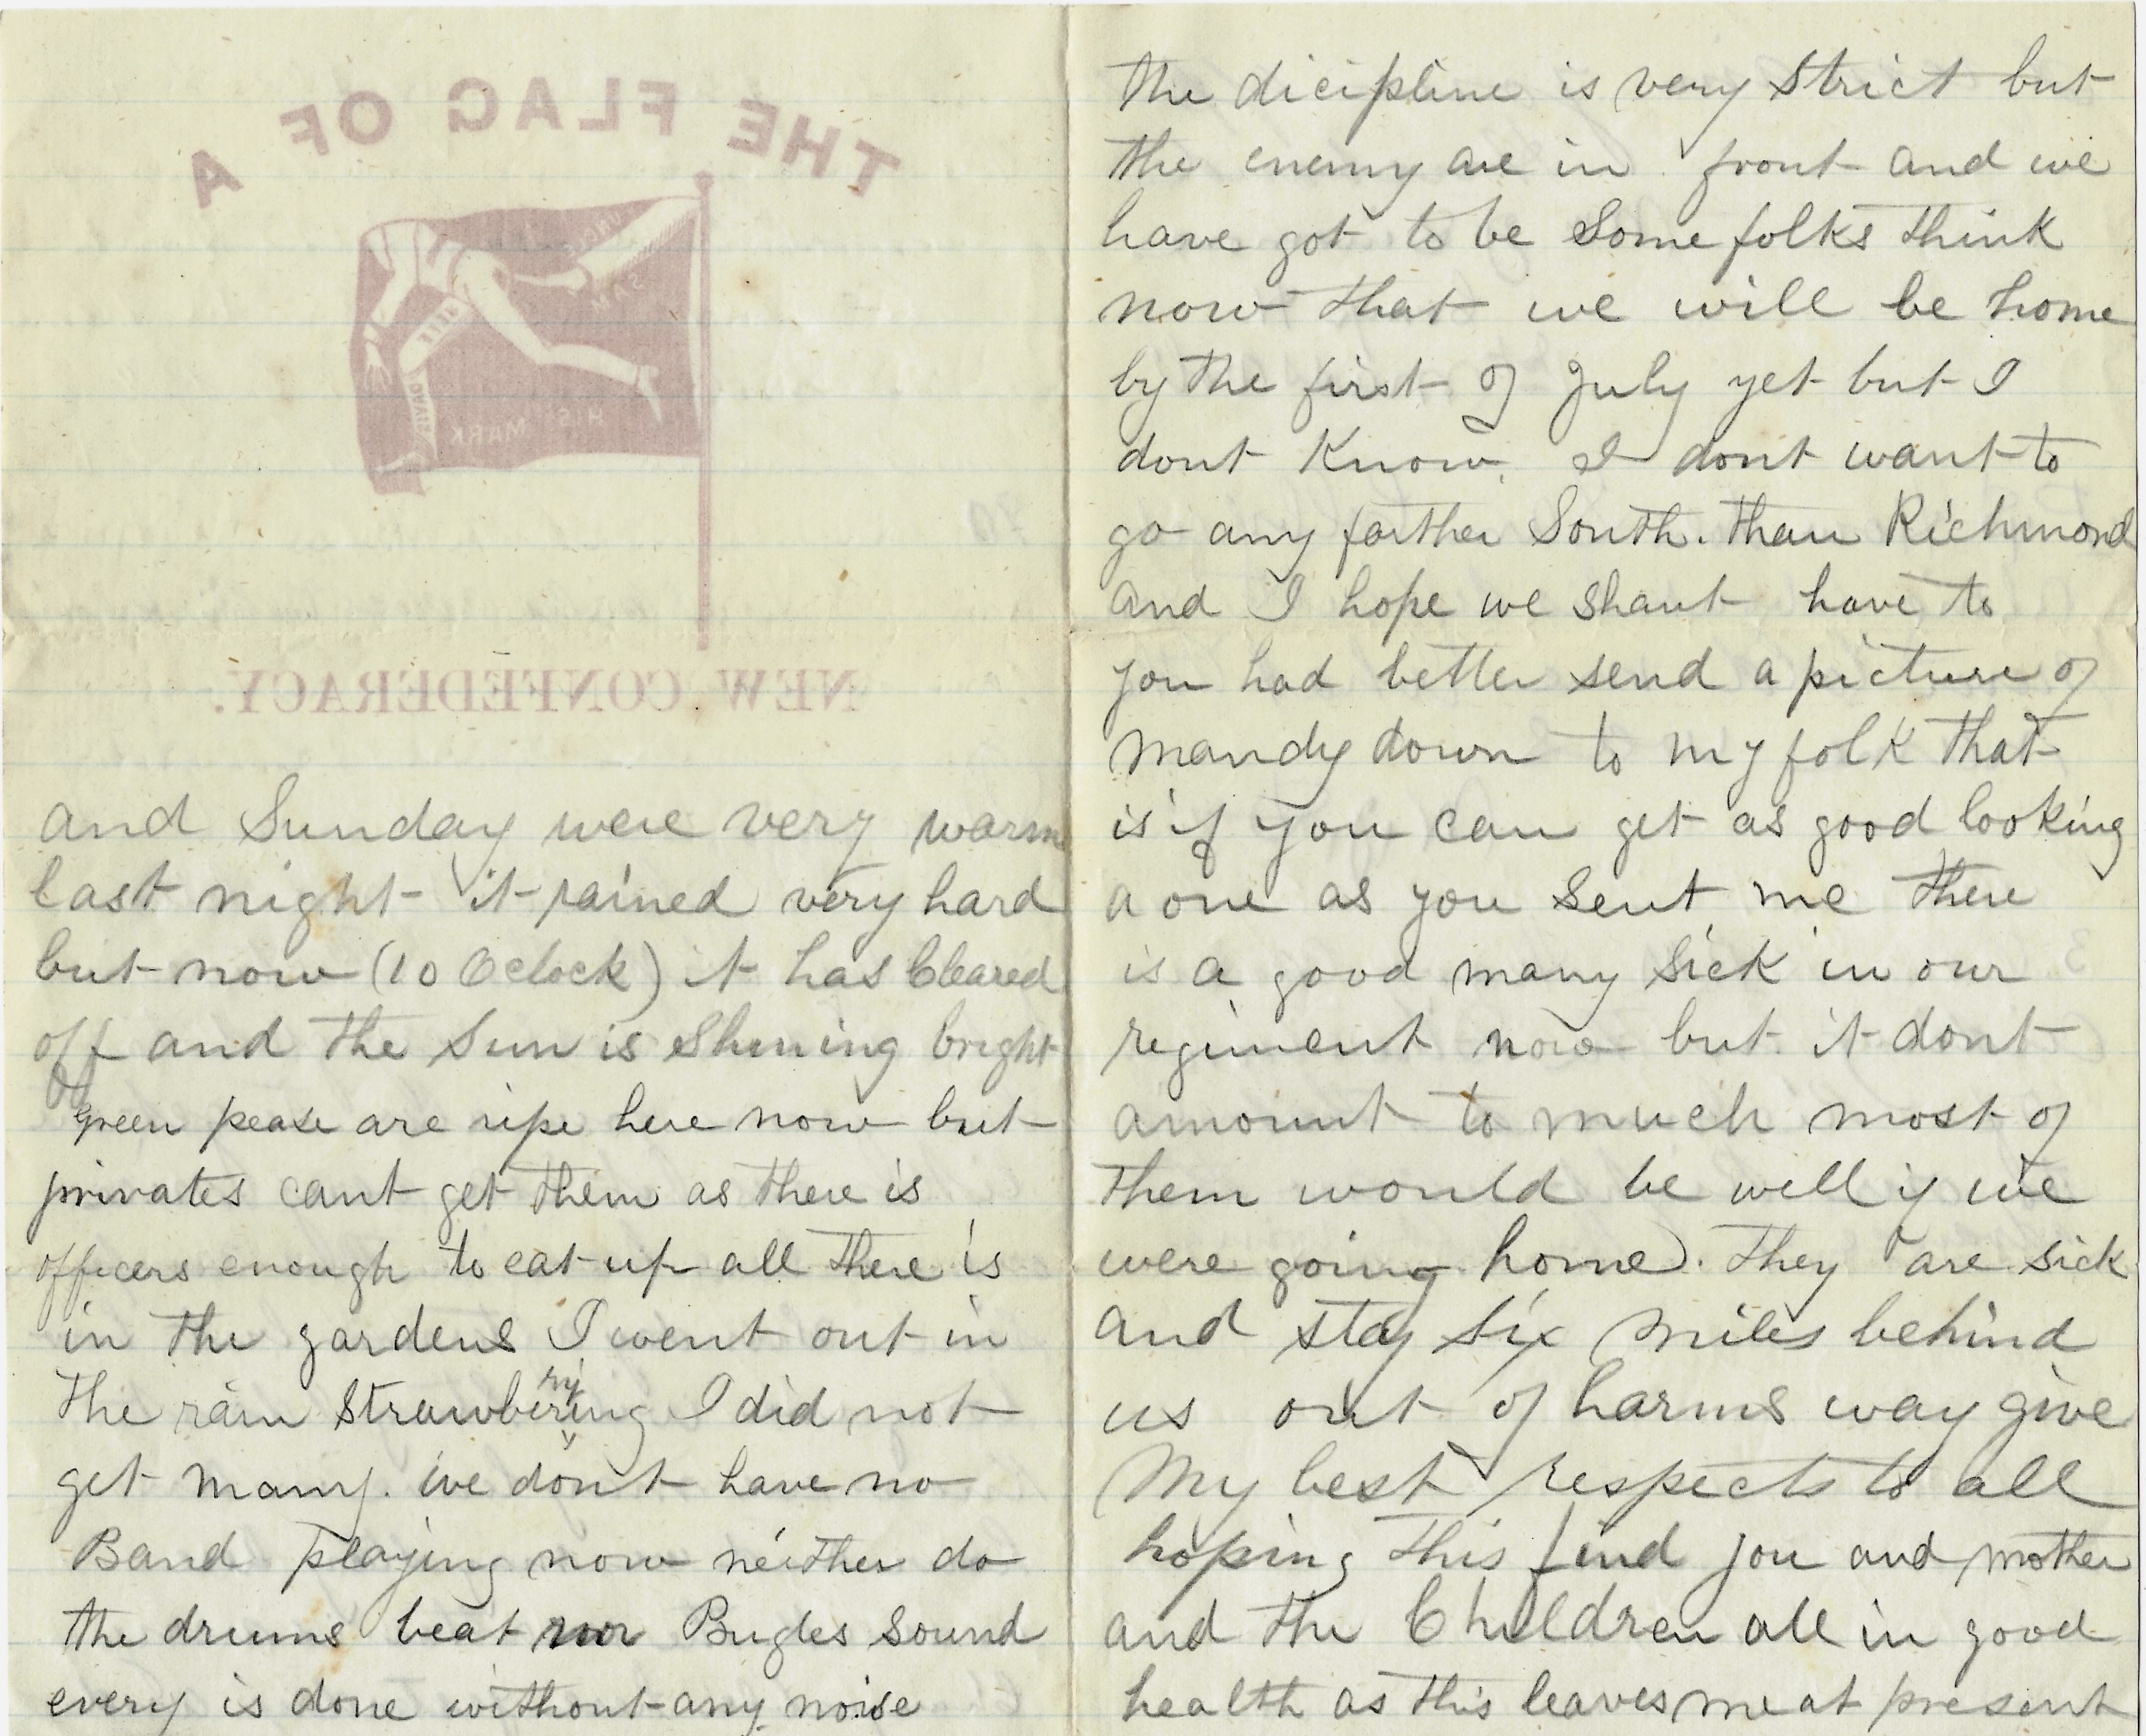 THE FLAG OF A
UNCLE SAM
HIS MARK
NEW CONFEDERACY.
and Sunday were very warm
last night it rained very hard
but now (10 Oclock) it has Cleared
off and the Sun is Shining bright
green pease are ripe here now but
privates cant get them as there is
officers enough to eat up all there is
in the gardens I went out in
ry
the rain Strawbering I did not
get many. we don't have no
Band playing now neither do
the drums beat nor Bugles Sound
every is done without any noise
the dicipline is very Strict but
the enemy are in front and we
have got to be Some folks think
now that we will be home
by the first of July yet but I
dont Know. I dont want to
go any farther South. than Richmond
and I hope we shant have to
you had better send a picture of
Mandy down to my folk that
is if you can get as good looking
a one as you Sent me there
is a good many Sick in our
regiment now but it dont
amount to much most of
them would be well if we
were going home. They are sick
and stay six miles behind
us out of harms way give
My best respects to all
hoping this find you and mother
and the Children all in good
health as this leaves me at present